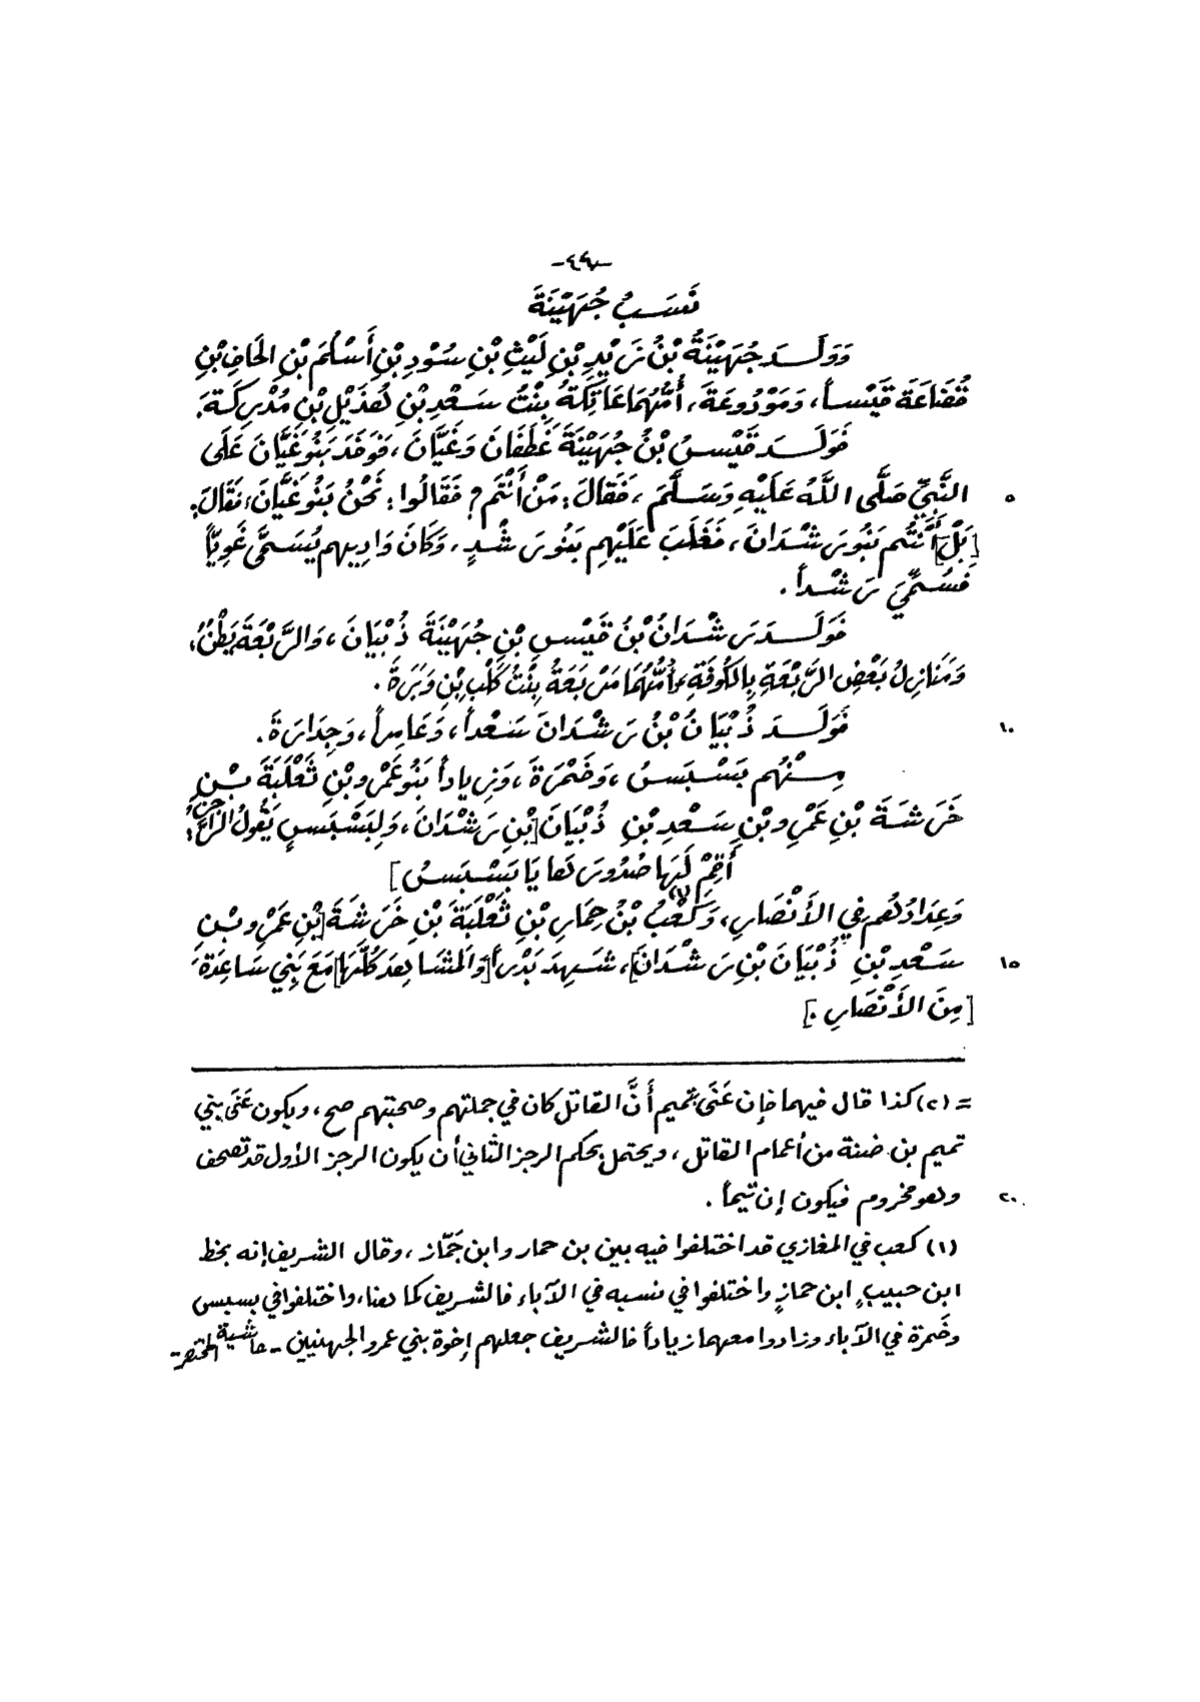 نَسَبُ جُهَيْنَةَ
وَوَلَدَ جُهَيْنَةُ بْنُ زَيْدِ بْنِ لَيْثِ بْنِ سُوْدِ بْنِ أَسْلُمَ بْنِ الحَافِ بْنِ
قُضَاعَةَ قَيْساً، وَمَوْدُوعَةَ، أُمُّهُمَا عَاتِكَةُ بِنْتُ سَعْدِ بْنِ هُذَيْلِ بْنِ مُدْرِكَةَ.
فَوَلَدَ قَيْسُ بْنُ جُهَيْنَةَ غَطَفَانَ وَغَيَّانَ، فَوَفَدَ بَنُو غَيَّانَ عَلَى
النَّبِيِّ صَلَّى اللَّهُ عَلَيْهِ وَسَلَّمَ، فَقَالَ: مَنْ أَنْتُمْ؟ فَقَالُوا: نَحْنُ بَنُو غَيَّانَ، فَقَالَ: ٥
[بَلْ] أَنْتُم بَنُو رَشْدَانَ، فَغَلَبَ عَلَيْهِم بَنُو رَشْدٍ، وَكَانَ وَادِيهِم يُسَمَّى غَوِيّاً
فَسُمِّيَ رَشْداً.
فَوَلَدَ رَشْدَانُ بْنُ قَيْسِ بْنِ جُهَيْنَةَ ذُبْيَانَ، وَالرَّبْعَةَ بَطْنٌ،
وَمَنَازِلُ بَعْضِ الرَّبْعَةِ بِالكُوفَةِ، وَأُمُّهُمَا مَرْبَعَةُ بِنْتُ كَلْبِ بْنِ وَبَرَةَ.
فَوَلَدَ ذُبْيَانُ بْنُ رَشْدَانَ سَعْداً، وَعَامِراً، وَجِدَارَةَ. ١٠
مِنْهُم بَسْبَسُ، وَضَمْرَةَ، وَزِيَاداً بَنُو عَمْرِو بْنِ ثَعْلَبَةَ بْنِ
خَرَشَةَ بْنِ عَمْرِو بْنِ سَعْدِ بْنِ ذُبْيَانَ [بْنِ رَشْدَانَ، وَلِبَسْبَسٍ يَقُولُ الرَّاجِزُ:
أَقِمْ لَهَا صُدُورَهَا يَا بَسْبَسُ]
وَعِدَادُهُم فِي الأَنْصَارِ، وَكَعْبُ(١) بْنُ حِمَارِ بْنِ ثَعْلَبَةَ بْنِ خَرَشَةَ [بْنِ عَمْرِو بْنِ
سَعْدِ بْنِ ذُبْيَانَ بْنِ رَشْدَانَ]، شَهِدَ بَدْراً [وَالمَشَاهِدَ كُلَّهَا] مَعَ بَنِي سَاعِدَةَ ١٥
[مِنَ الأَنْصَارِ.]
= (٢) كذا قال فيهما فإن عَنَى بتميم أَنَّ القاتل كان في جملتهم وصحبتهم صح، ويكون عَنَى بني
تميم بن ضنة من أعمام القاتل، ويحتمل بحكم الرجز الثاني أن يكون الرجز الأول قد تصحف
وهو مخروم فيكون إن تيماً. ٢٠
(١) كعب في المغازي قد اختلفوا فيه بين بن حمار وابن جَمّاز، وقال الشريف إنه بخط
ابن حبيبٍ ابن حمازٍ واختلفوا في نسبه في الآباء فالشريف كما هنا، واختلفوا في بسبس
وضَمرة في الآباء وزادوا معهما زياداً فالشريف جعلهم إخوة بني عمرو الجهنيين - حاشية المختصر -